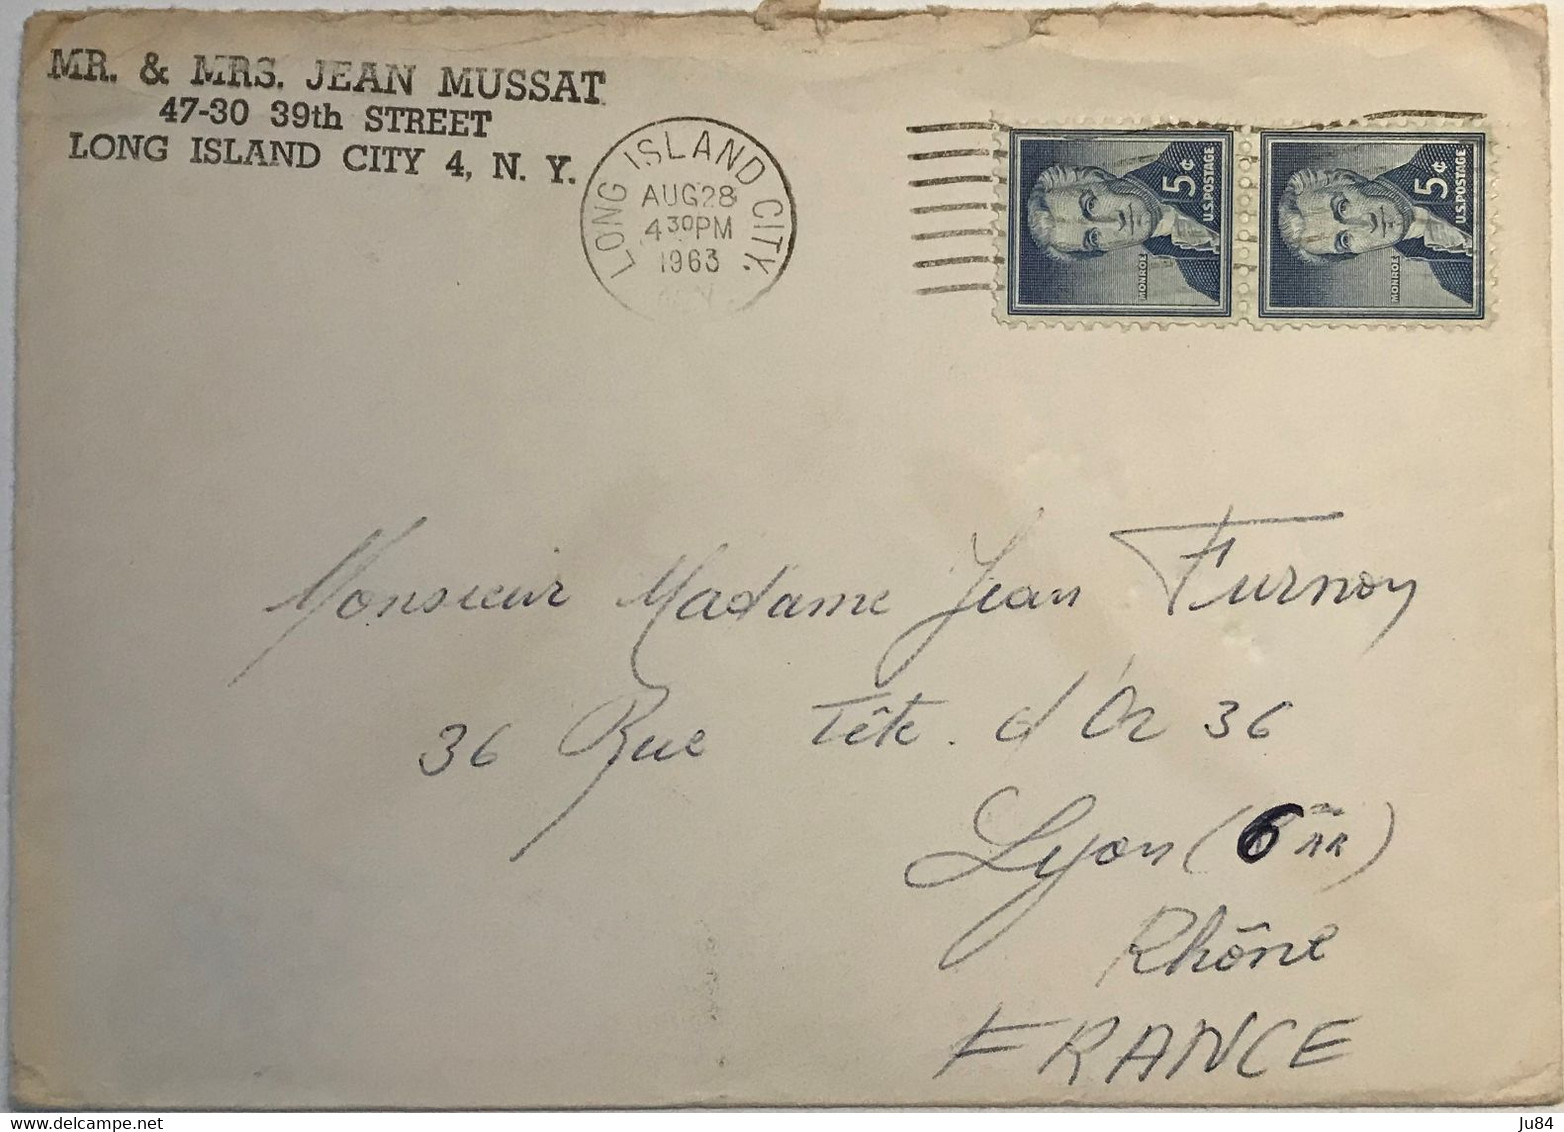 MR. & MRS. JEAN MUSSAT
47-30 39th STREET
LONG ISLAND CITY 4, N. Y.
LONG ISLAND CITY,
AUG 28
4 30 PM
1963
5¢
U.S. POSTAGE
MONROE
5¢
U.S. POSTAGE
MONROE
Monsieur Madame Jean Furnon
36 Rue Tête. d'Or 36
Lyon (6ème AR)
Rhône
FRANCE
Ju84